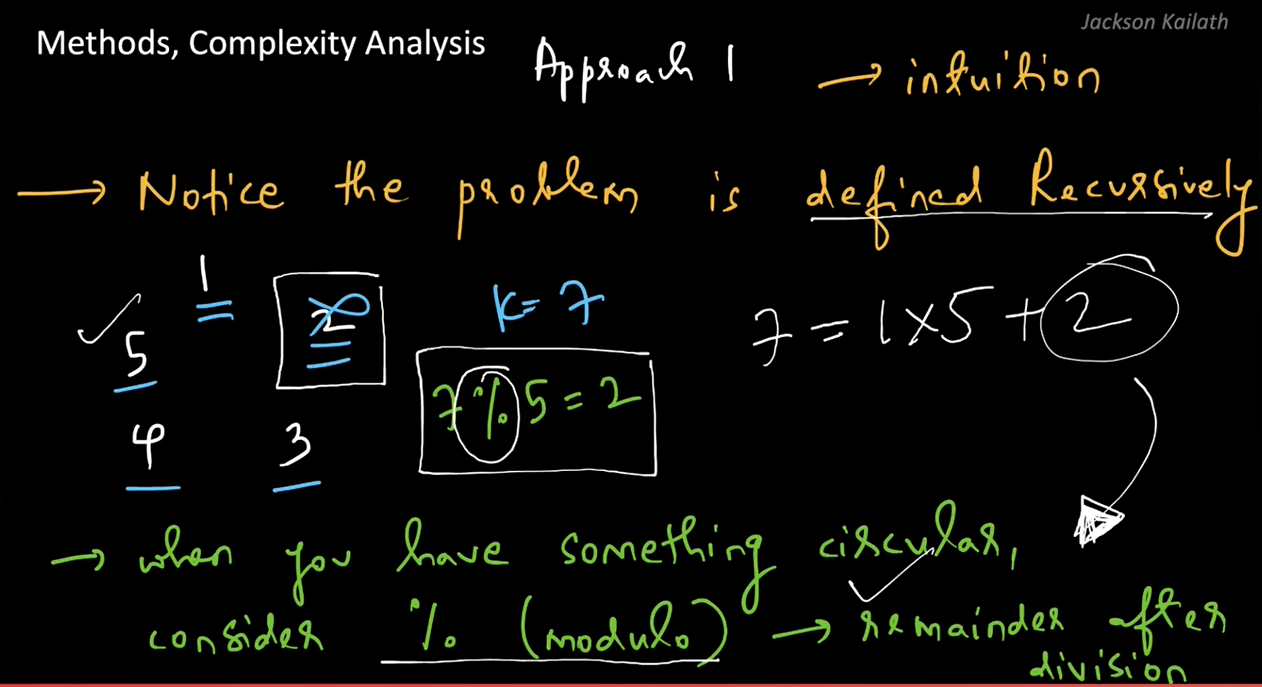 Jackson Kailath
Methods, Complexity Analysis
Approach 1 → intuition
→ Notice the problem is defined Recursively
1 2 K= 7
5
7 = 1×5 + 2
7 % 5 = 2
4 3
→ when you have something circular,
consider % (modulo) → remainder after
division